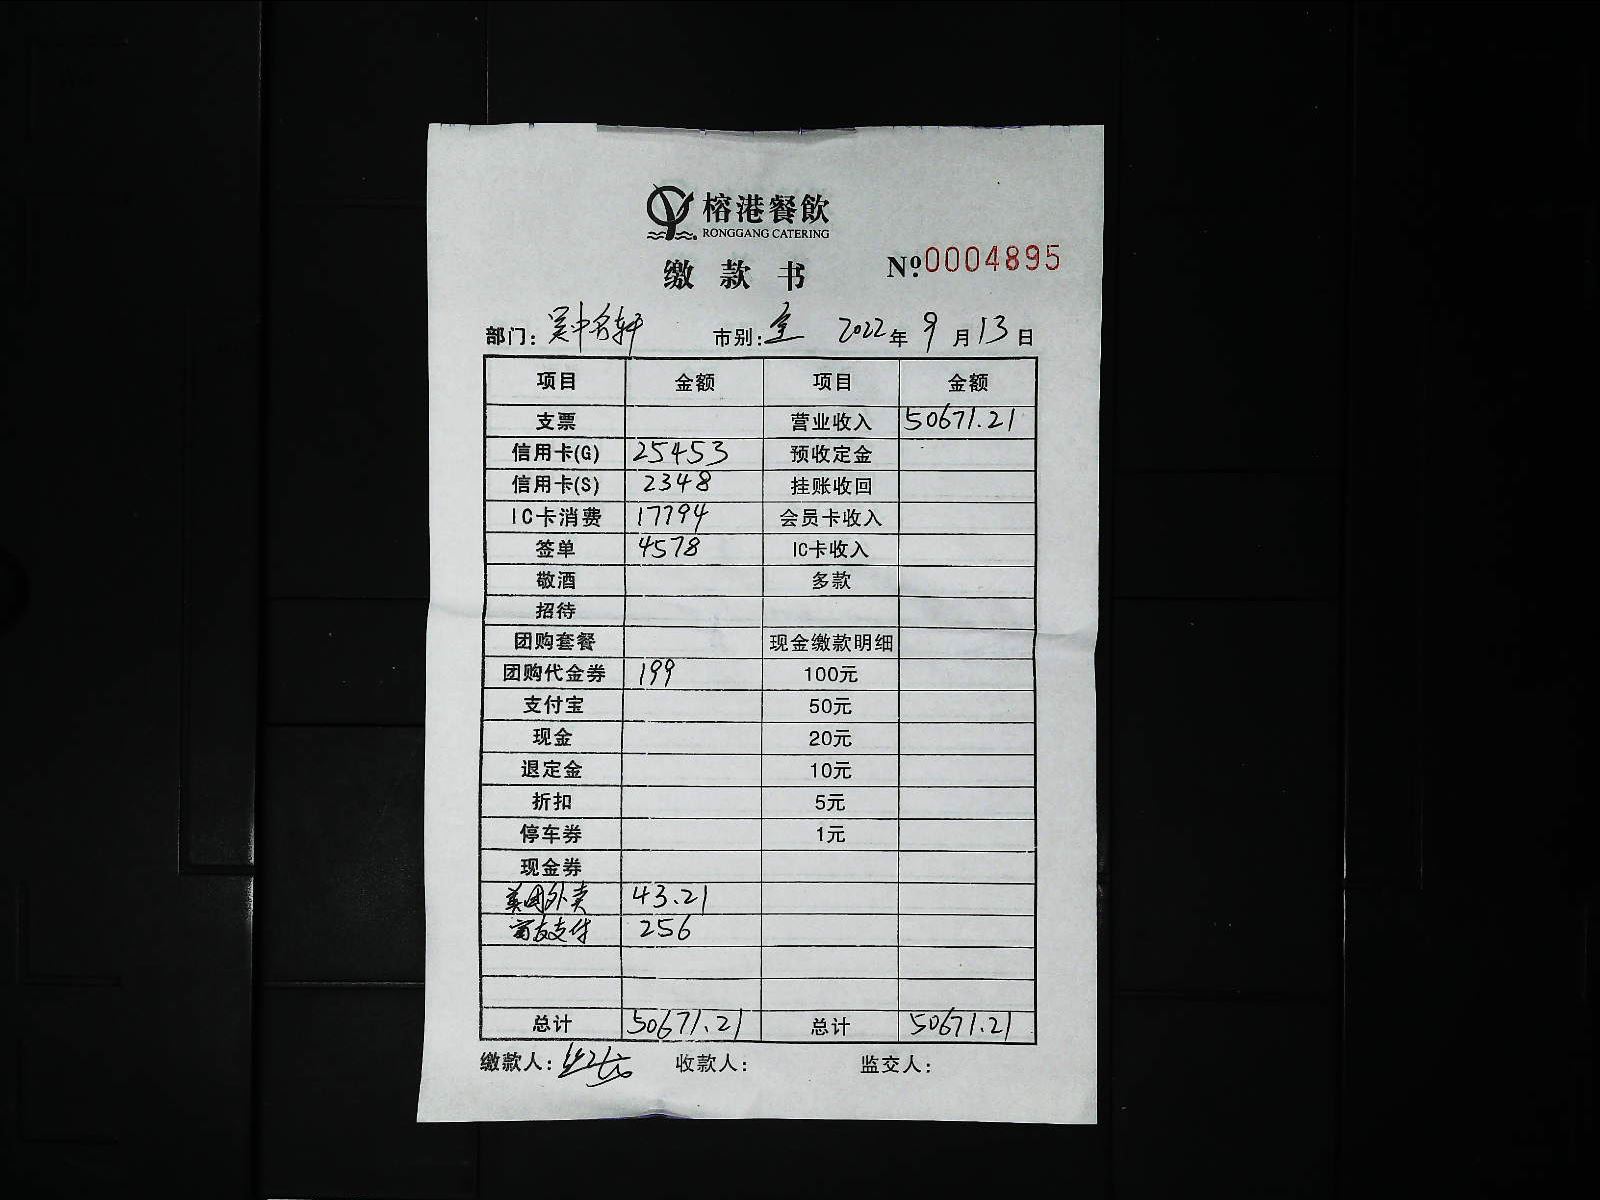 榕港餐飲
RONGGANG CATERING
缴款书
№0004895
部门: 吴中名轩 市别: 全 2022年9月13日
项目 金额 项目 金额
支票 营业收入 50671.21
信用卡(G) 25453 预收定金
信用卡(S) 2348 挂账收回
IC卡消费 17794 会员卡收入
签单 4578 IC卡收入
敬酒 多款
招待
团购套餐 现金缴款明细
团购代金券 199 100元
支付宝 50元
现金 20元
退定金 10元
折扣 5元
停车券 1元
现金券
美团外卖 43.21
支付 256
总计 50671.21 总计 50671.21
缴款人: 收款人: 监交人: